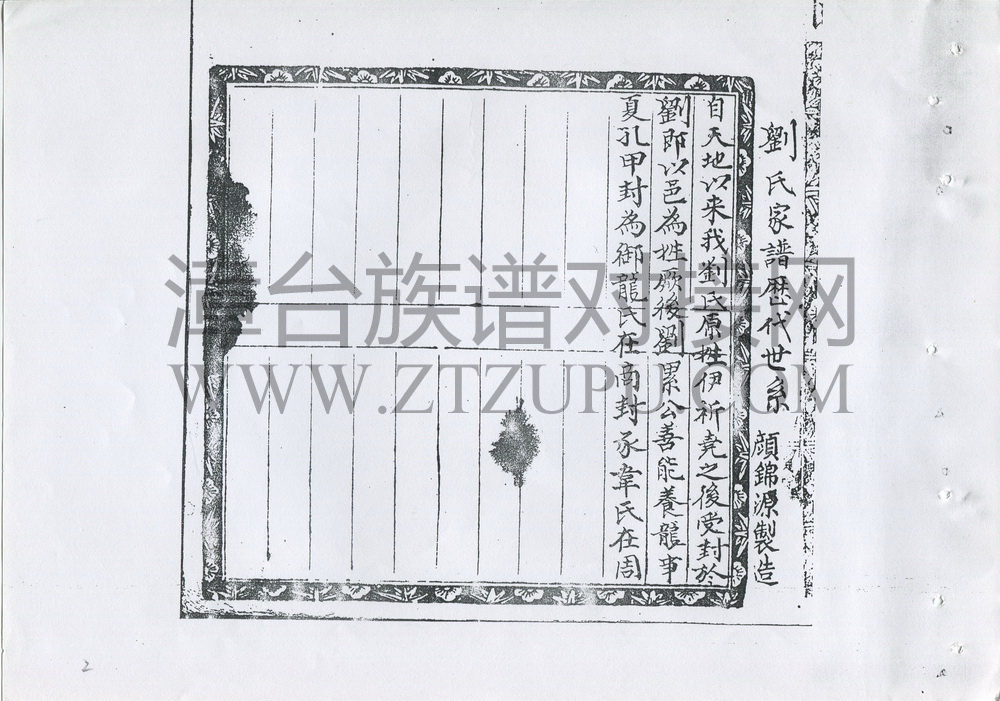 劉氏家譜歷代世系 顏錦源製造
自天地以来我劉氏原姓伊祈堯之後受封於
劉即以邑為姓厥後劉累公善能養龍事
夏孔甲封為御龍氏在商封豕韋氏在周
漳台族谱对接网
WWW.ZTZUPU.COM
2